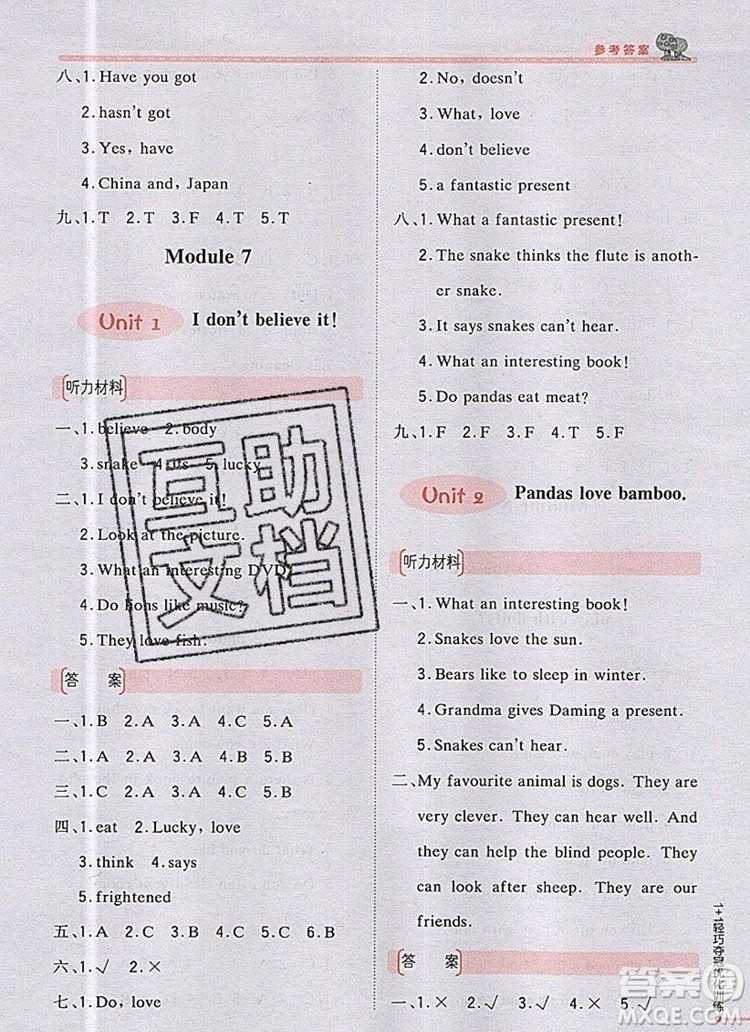 参考答案
八、1. Have you got
2. hasn't got
3. Yes, have
4. China and, Japan
九、1. T 2. T 3. F 4. F 5. T
Module 7
Unit 1 I don't believe it!
听力材料
一、1. believe 2. body
3. snake 4. its 5. lucky
二、1. I don't believe it!
2. Look at the picture.
3. What an interesting DVD!
4. Do lions like music?
5. They love fish.
答 案
一、1. B 2. A 3. A 4. C 5. A
二、1. A 2. A 3. A 4. C 5. C
三、1. C 2. B 3. A 4. C 5. C
四、1. eat 2. Lucky, love
3. think 4. says
5. frightened
五、1. A 2. C 3. A 4. C 5. B
六、1. √ 2. ×
七、1. Do, love
2. No, doesn't
3. What, love
4. don't believe
5. a fantastic present
八、1. What a fantastic present!
2. The snake thinks the flute is anoth-
er snake.
3. It says snakes can't hear.
4. What an interesting book!
5. Do pandas eat meat?
九、1. F 2. F 3. T 4. T 5. F
Unit 2 Pandas love bamboo.
听力材料
一、1. What an interesting book!
2. Snakes love the sun.
3. Bears like to sleep in winter.
4. Grandma gives Daming a present.
5. Snakes can't hear.
二、My favourite animal is dogs. They are
very clever. They can hear well. They
can help the blind people. They can
look after sheep. They are our
friends.
答 案
一、1. × 2. √ 3. √ 4. × 5. √
1+1轻巧夺冠优化训练
互助
文档
答案圈
MXQE.COM